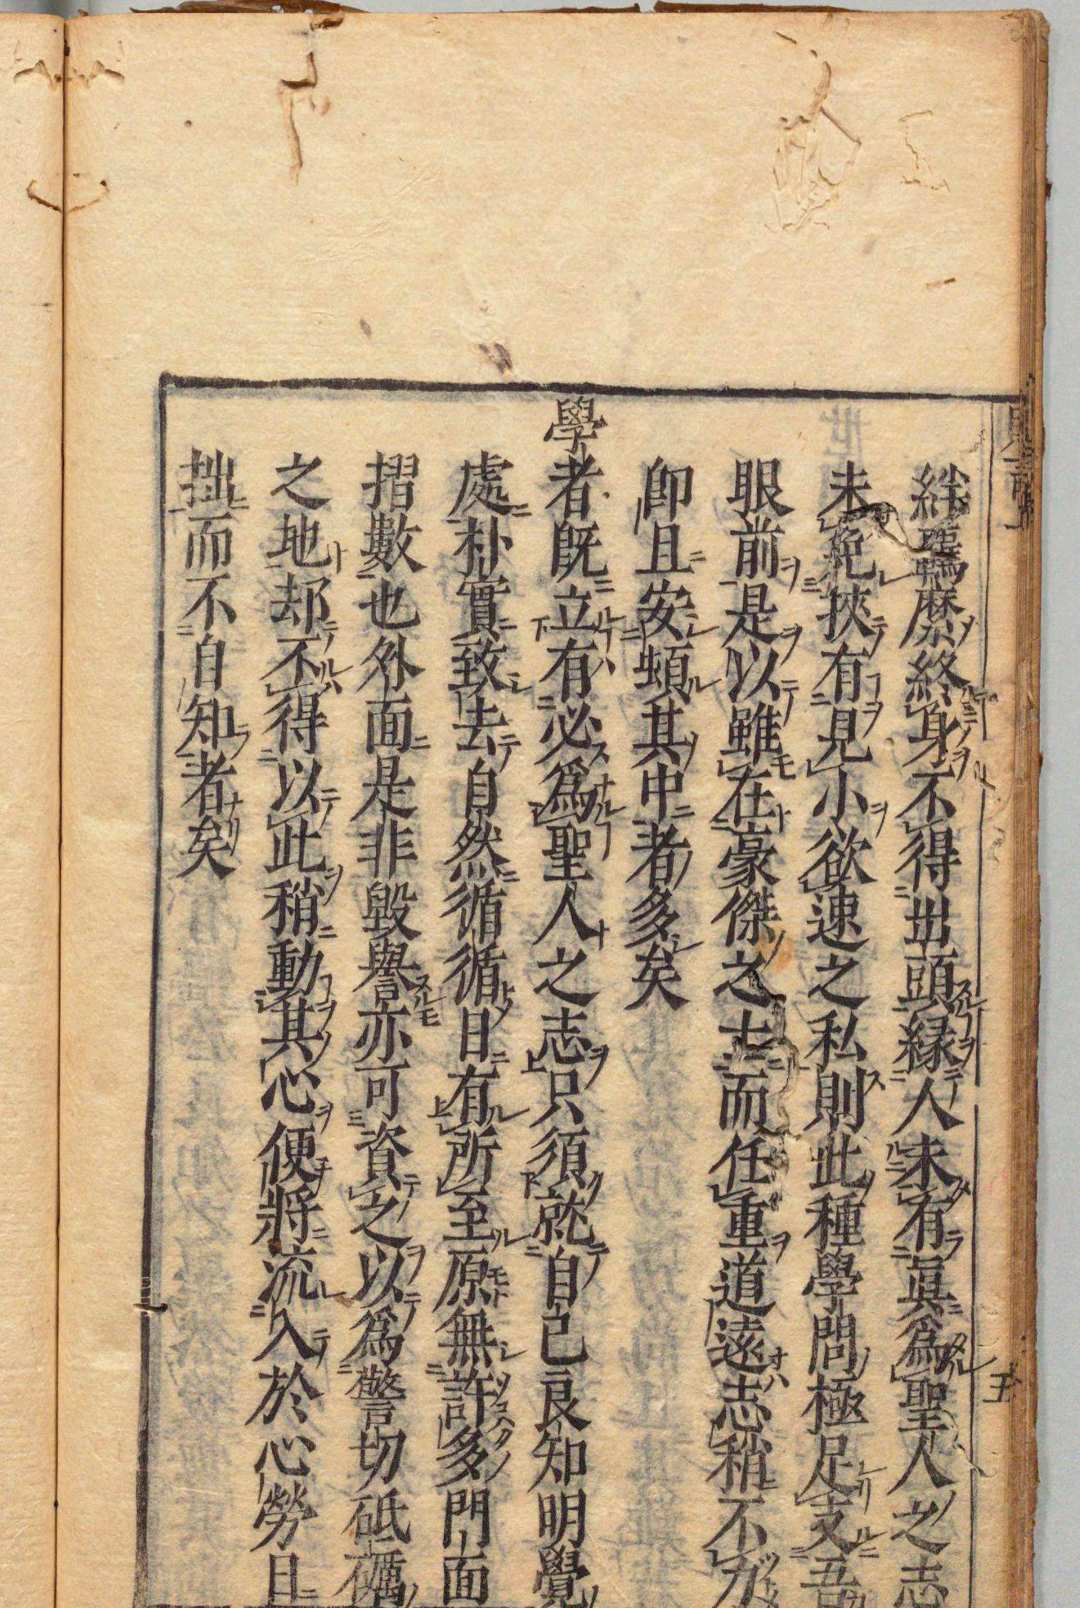 絆羈縻終身不得出頭緣人未有眞爲聖人之志
未免挾有見小欲速之私則此種學問極足支吾
眼前是以雖在豪傑之士而任重道遠志稍不力
卽且安頓其中者多矣
學者旣立有必爲聖人之志只須就自己良知明覺
處朴實致去自然循循日有所至原無許多門面
摺數也外面是非毀譽亦可資之以爲警切砥礪
之地却不得以此稍動其心便將流入於心勞日
拙而不自知者矣